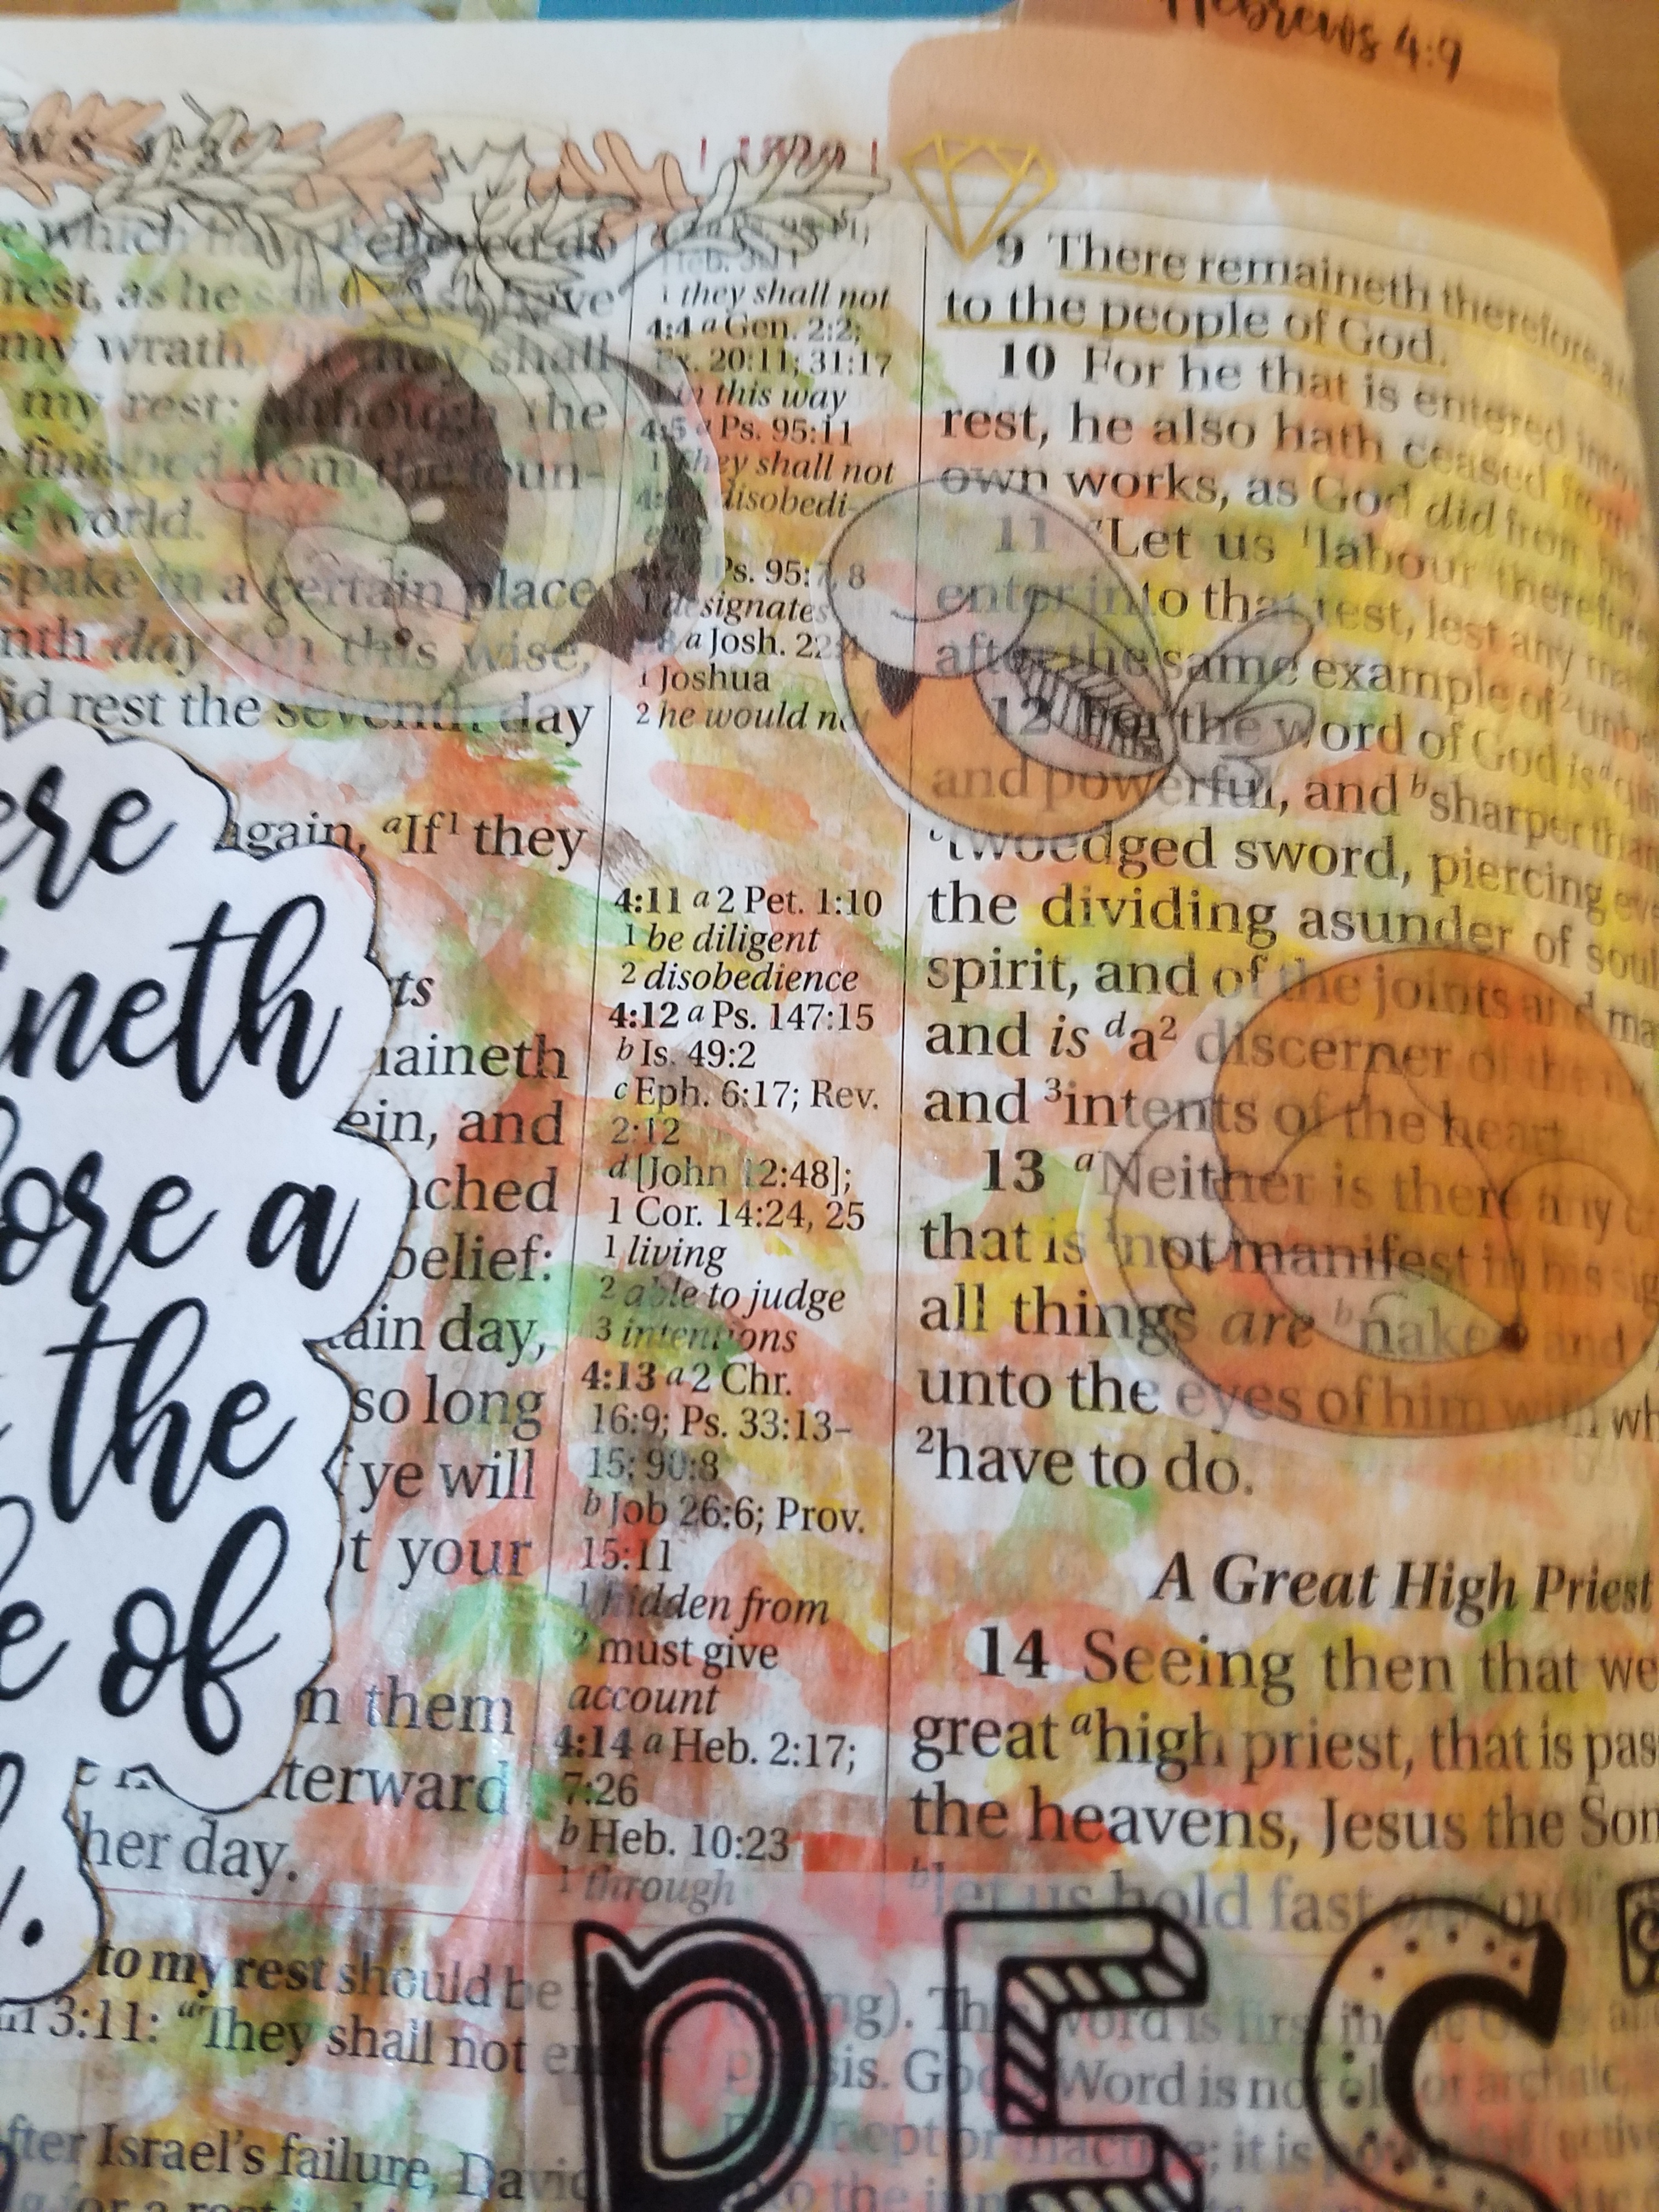 Hebrews 4:9
which have believed do
rest, as he said, As I have
my wrath, if they shall
my rest: although the
finished from the foun-
world.
spake in a certain place
day in this wise,
rest the seventh day
again, ᵃIf¹ they
ere
ineth
ore a
the
e of
ts
maineth
ein, and
ched
belief:
tain day,
so long
ye will
t your
n them
terward
her day.
1 they shall not
4:4 a Gen. 2:2;
Ex. 20:11; 31:17
in this way
4:5 a Ps. 95:11
1 they shall not
disobedi-
Ps. 95:7, 8
1 designates
a Josh. 22:4
1 Joshua
2 he would not
4:11 a 2 Pet. 1:10
1 be diligent
2 disobedience
4:12 a Ps. 147:15
b Is. 49:2
c Eph. 6:17; Rev.
2:12
d [John 12:48];
1 Cor. 14:24, 25
1 living
2 able to judge
3 intentions
4:13 a 2 Chr.
16:9; Ps. 33:13–
15; 90:8
b Job 26:6; Prov.
15:11
1 hidden from
2 must give
account
4:14 a Heb. 2:17;
7:26
b Heb. 10:23
1 through
9 There remaineth therefore a
to the people of God.
10 For he that is entered into
rest, he also hath ceased from
own works, as God did from
11 ᵃLet us ¹labour therefore
enter into that rest, lest any
after the same example of ²
12 For the word of God is ᵃ
and powerful, and ᵇsharper than
ᶜtwoedged sword, piercing
the dividing asunder of soul
spirit, and of the joints and
and is ᵈa² discerner of the
and ³intents of the heart
13 ᵃNeither is there any
that is ¹not manifest in his
all things are ᵇnaked and
unto the eyes of him with
²have to do.
A Great High Priest
14 Seeing then that we
great ᵃhigh priest, that is pas
the heavens, Jesus the Son
ᵇlet us hold fast
to my rest should be
3:11: “They shall not
After Israel’s failure, David
for a rest
Word is first in
God's Word is not
it is
RES